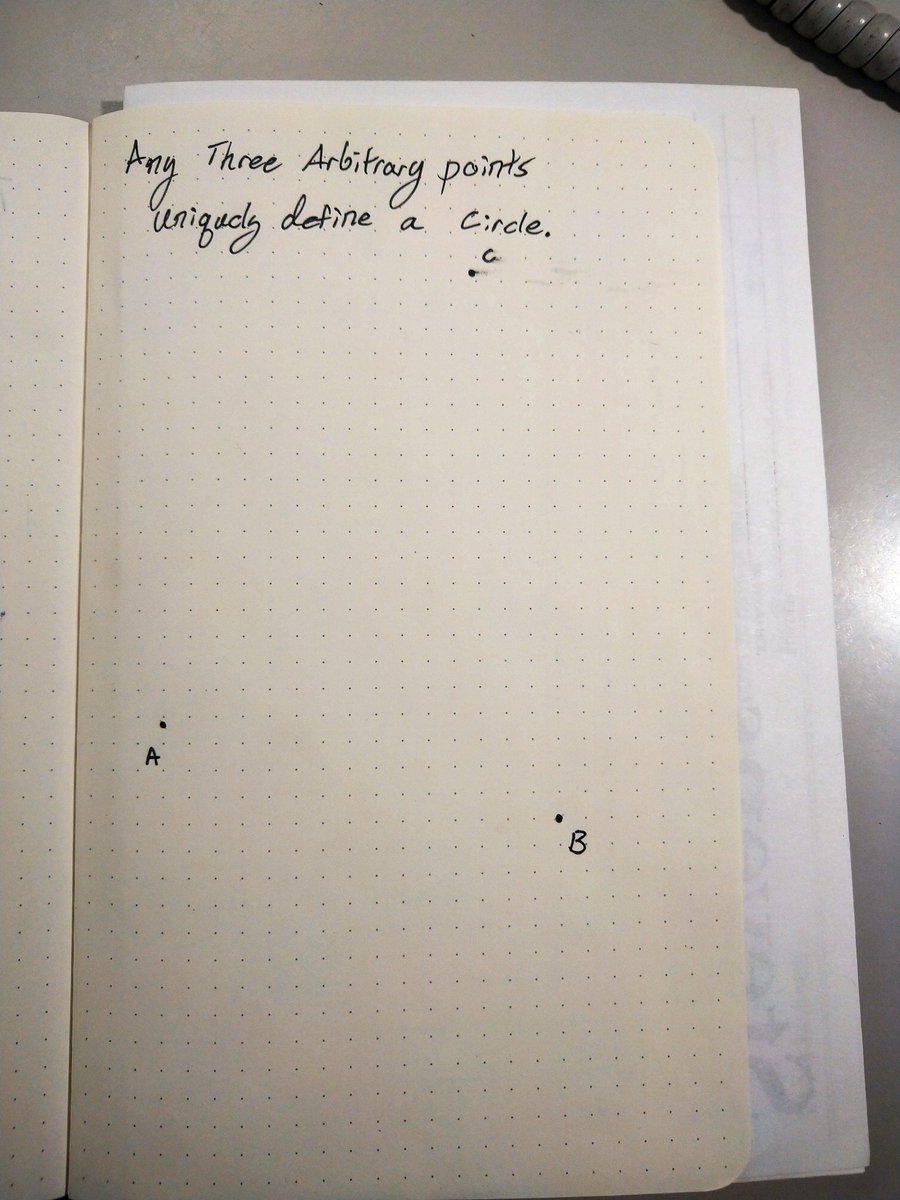 Any Three Arbitrary points
uniquely define a Circle.
C
A
B